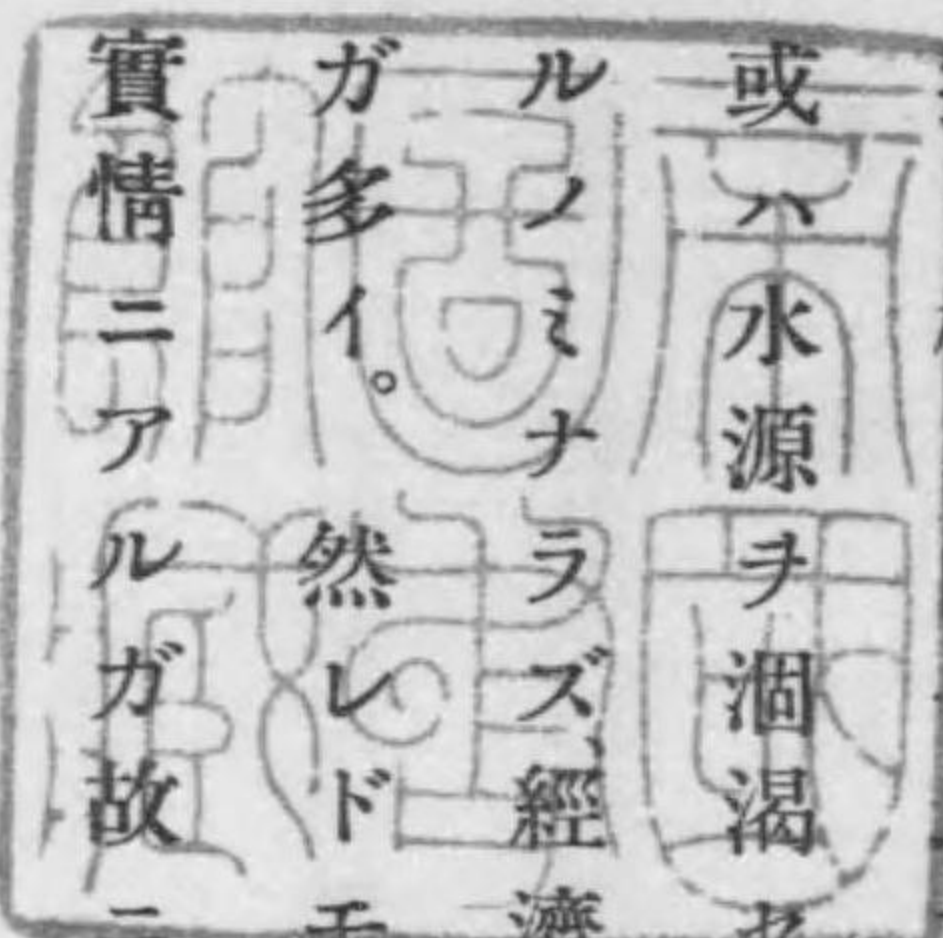 或ハ水源ヲ涸渇セ
ルノミナラズ、經濟
ガ多イ。然レドモ
實情ニアルガ故ニ